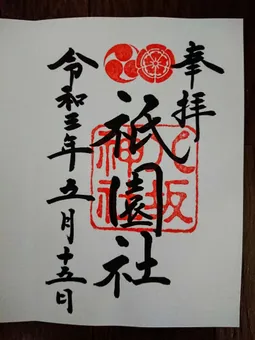 奉拝
八坂神社
祇園社
令和三年五月十五日